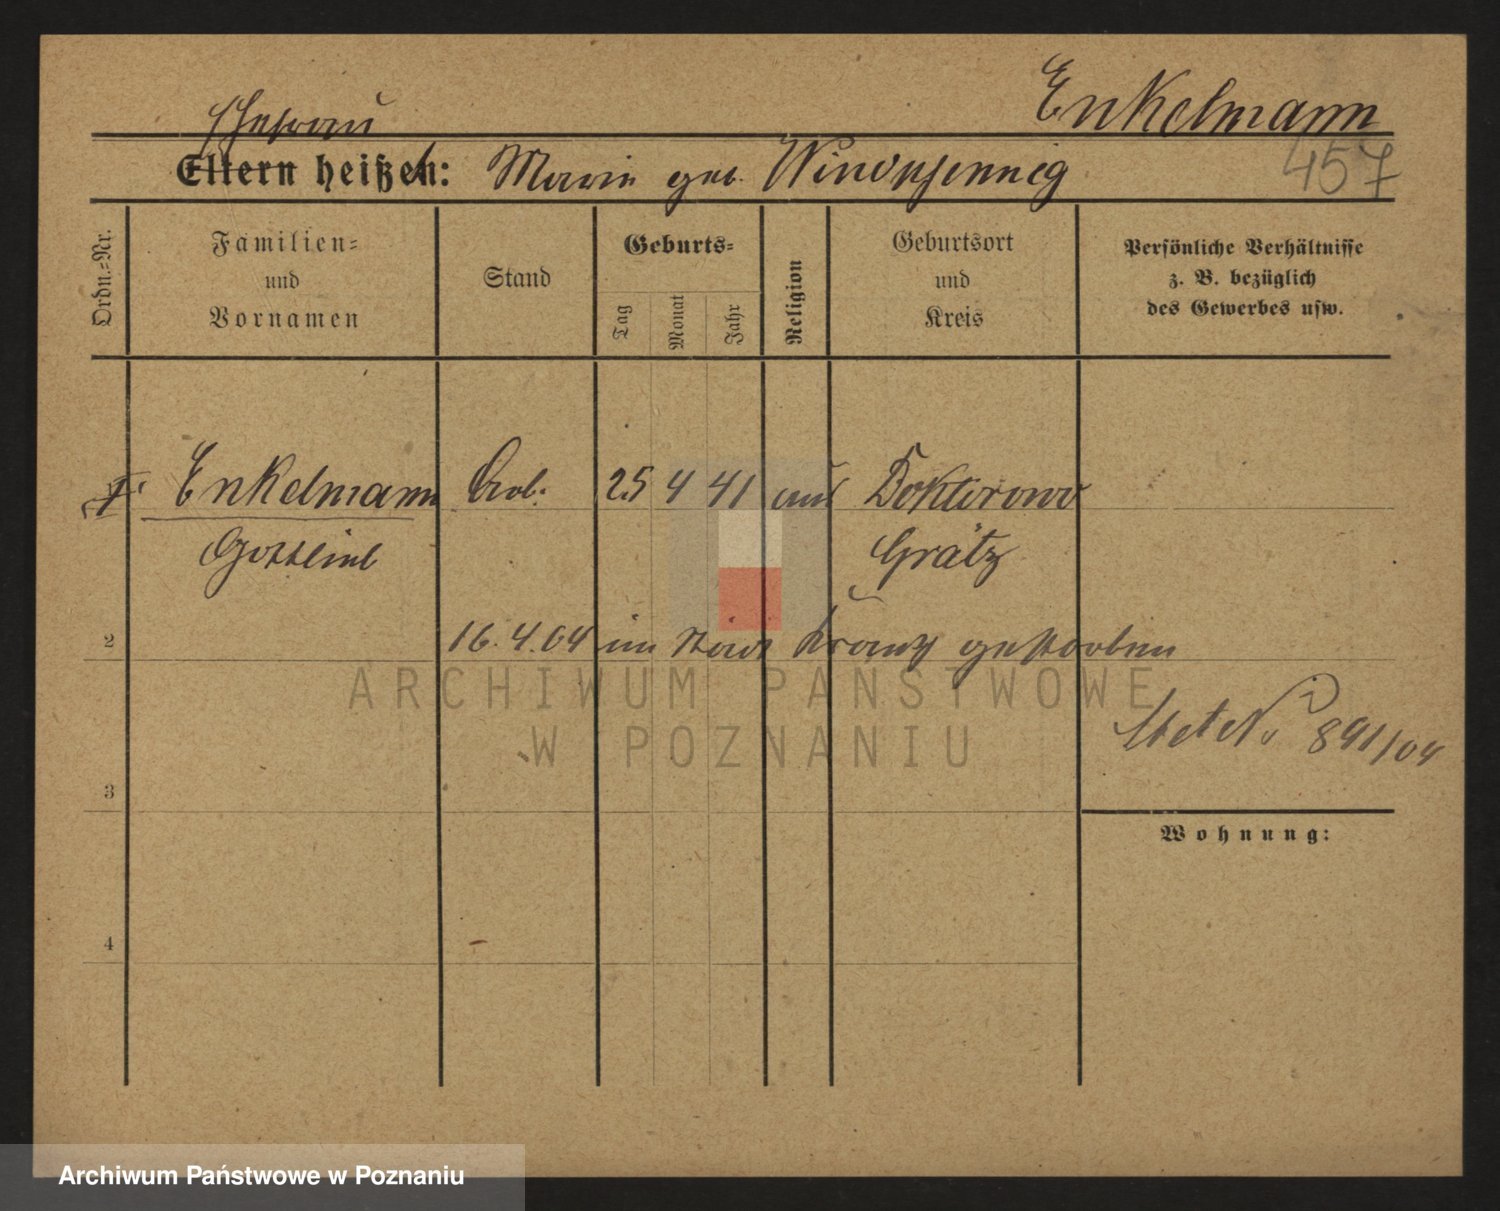 Enkelmann
Ehefrau
Eltern heißen: Marie geb. Windpfennig
457
Ordn.-Nr.
Familien-
und
Vornamen
Stand
Geburts-
Tag
Monat
Jahr
Religion
Geburtsort
und
Kreis
Persönliche Verhältnisse
z. B. bezüglich
des Gewerbes usw.
Enkelmann Arb. 25 4 41 Doktorowo
Gottlieb Grätz
2 16.4.04 im Stadt Krankh gestorben
ARCHIWUM PAŃSTWOWE
W POZNANIU
891/04
3
Wohnung:
4
Archiwum Państwowe w Poznaniu